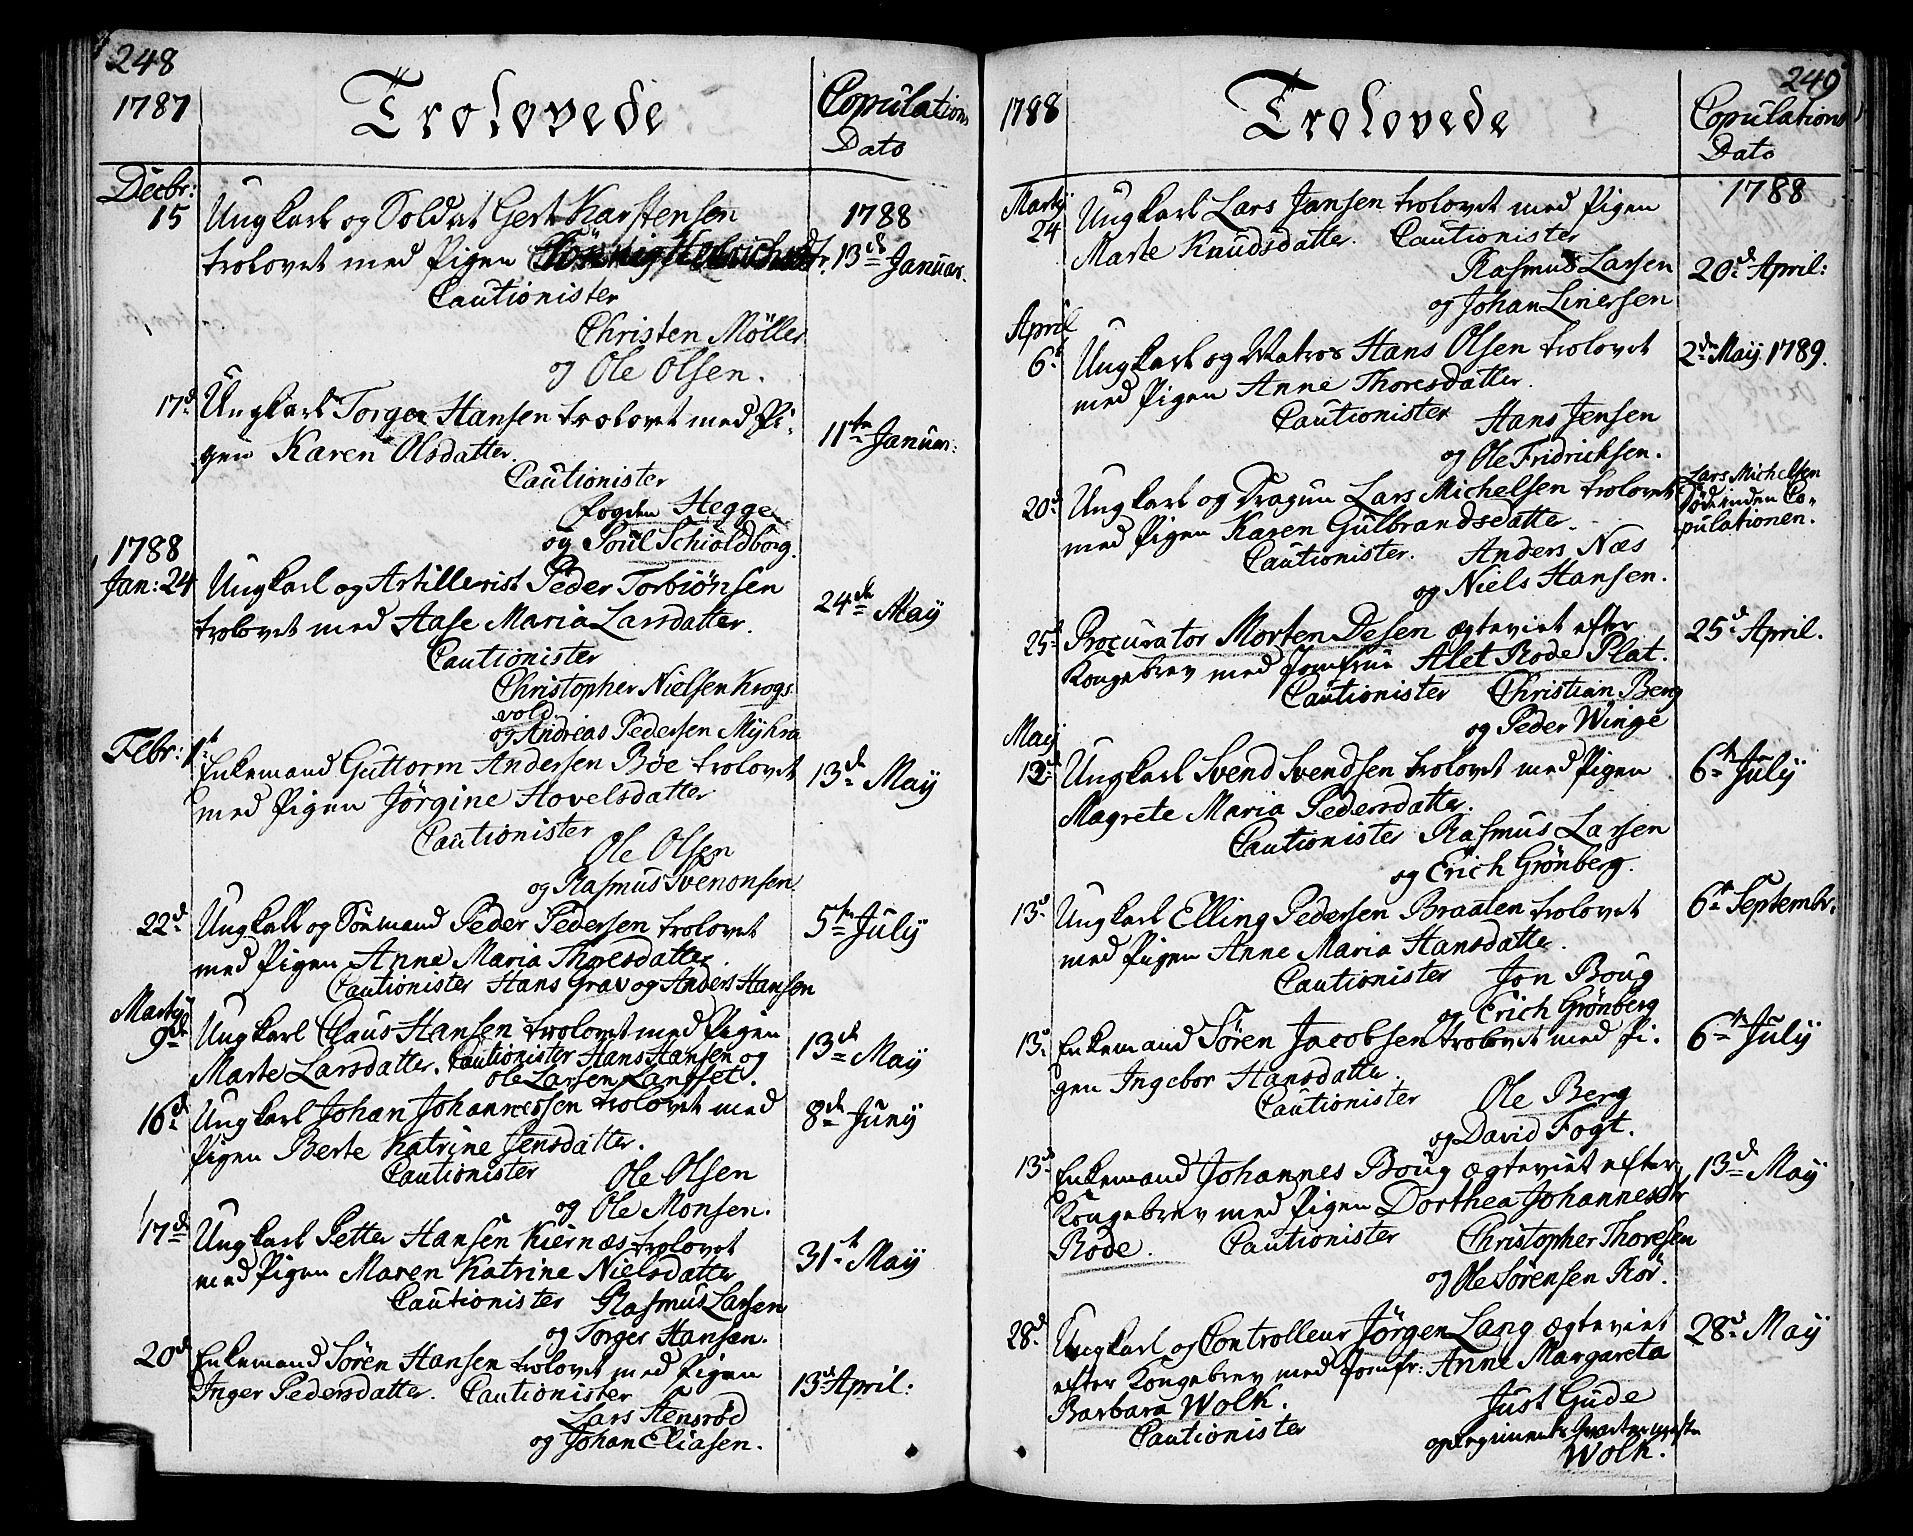 248
1787
Trolovede
Copulations
Dato
Decbr:
15 Ungkarl og Soldat Gert Karstensen
1788
trolovet med Pigen
13d Januar.
Cautionister
Christen Möller
og Ole Olsen.
17d Ungkarl Torger Hansen trolovet med Pi-
11te Januar:
gen Karen Olsdatter.
Cautionister
fogden Hegge
og Poul Schioldborg.
1788
Jan: 24 Ungkarl og Artillerist Peder Torbiönsen
24de May
trolovet med Aase Maria Larsdatter.
Cautionister
Christopher Nielsen Krogs
vold
og Andreas Pedersen Myhra
Febr: 1t Enkemand Guttorm Andersen Böe trolovet
13de May
med Pigen Jörgine Hovelsdatter
Cautionister
Ole Olsen
og Rasmus Svenonsen.
22d Ungkarl og Sömand Peder Pedersen trolovet
5te July
med Pigen Anne Maria Thoresdatter.
Cautionister Hans Grav og Anders Hansen
Martÿ
9de Ungkarl Claus Hansen trolovet med Pigen
13de May
Marte Larsdatter. Cautionister Hans Hansen og
Ole Larsen Langset.
16d Ungkarl Johan Johannessen trolovet med
8de Juny
Pigen Berte Katrine Jensdatter.
Cautionister Ole Olsen
og Ole Monsen.
17de Ungkarl Petter Hansen Kiernæs trolovet
31t May
med Pigen Maren Katrine Nielsdatter
Cautionister Rasmus Larsen
og Torger Hansen.
20d Enkemand Sören Hansen trolovet med Pigen
13d April:
Inger Pedersdatter. Cautionister
Lars Stensröd
og Johan Eliasen.
249
1788
Trolovede
Copulations
Dato
Martÿ
24 Ungkarl Lars Jansen trolovet med Pigen
1788
Marte Knudsdatter. Cautionister
Rasmus Larsen
20d April:
og Johan Linersen
April
6t Ungkarl og Matros Hans Olsen trolovet
2de May 1789.
med Pigen Anne Thoresdatter.
Cautionister Hans Jensen
og Ole Fridrichsen.
20d Ungkarl og Dragun Lars Michelsen trolovet
Lars Michelsen
död inden Co-
pulationen.
med Pigen Karen Gulbrandsdatte.
Cautionister. Anders Næs
og Niels Hansen.
25d Procurator Morten Desen ægteviet efter
25d April.
Kongebrev med Jomfrue Alet Rode Plat.
Cautionister Christian Berg
og Peder Winge
May
12d Ungkarl Svend Svendsen trolovet med Pigen
6te July
Magrete Maria Pedersdatter.
Cautionister Rasmus Larsen
og Erich Grönberg.
13d Ungkarl Elling Pedersen Braaten trolovet
6t Septembr:
med Pigen Anne Maria Hansdatter.
Cautionister Jon Boug
og Erich Grönberg
13d Enkemand Sören Jacobsen trolovet med Pi-
6te July
gen Ingebor Hansdatter.
Cautionister Ole Berg
og David Fogt.
13d Enkemand Johannes Boug ægteviet efter
13de May
Kongebrev med Pigen Dorthea Johannesdtr
Rode. Cautionister Christopher Thoresen
og Ole Sörensen Rör.
28d Ungkarl og Controlleur Jörgen Lang ægteviet
28d May
efter Kongebrev med Jomfr: Anne Margareta
Barbara Wolk. Just Gude
Cautionister og Regiments Qvarteermestr
Wolk.